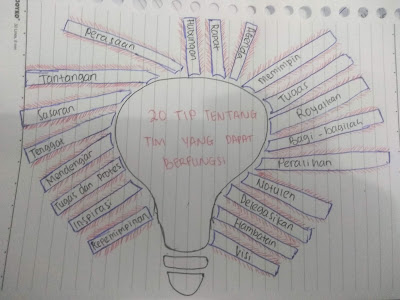 20 TIP TENTANG
TIM YANG DAPAT
BERFUNGSI
Perasaan
Hubungan
Rapat
Agenda
memimpin
Tugas
Royalkan
Bagi-bagilah
Peralihan
Notulen
Delegasikan
Hambatan
Visi
Tantangan
Sasaran
Tenggat
Mendengar
Tugas dan Protes
Inspirasi
Kepemimpinan